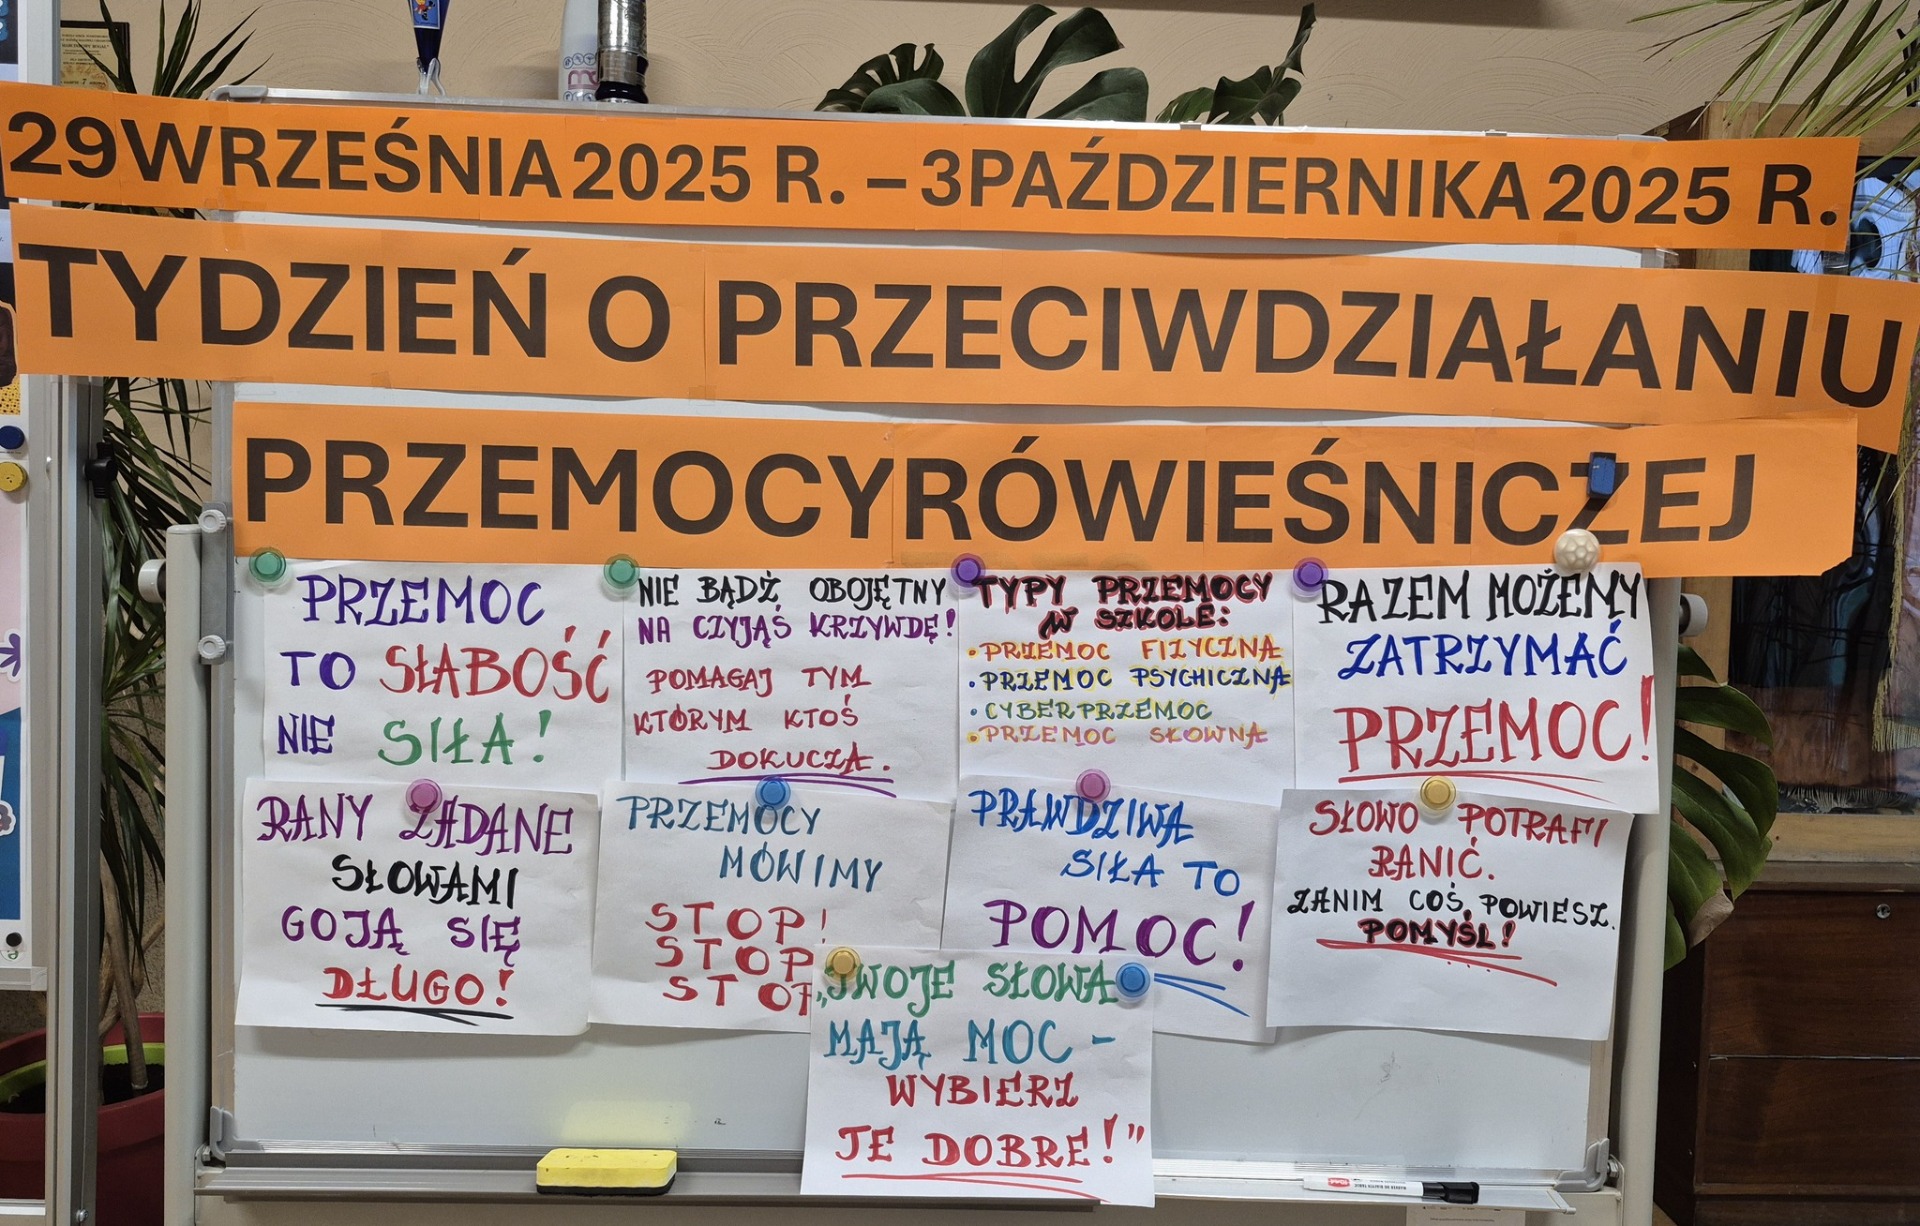 29 WRZEŚNIA 2025 R. – 3 PAŹDZIERNIKA 2025 R.
TYDZIEŃ O PRZECIWDZIAŁANIU
PRZEMOCY RÓWIEŚNICZEJ
PRZEMOC
TO SŁABOŚĆ
NIE SIŁA!
NIE BĄDŹ OBOJĘTNY
NA CZYJĄŚ KRZYWDĘ!
POMAGAJ TYM
KTÓRYM KTOŚ
DOKUCZA.
TYPY PRZEMOCY
W SZKOLE:
• PRZEMOC FIZYCZNA
• PRZEMOC PSYCHICZNA
• CYBERPRZEMOC
• PRZEMOC SŁOWNA
RAZEM MOŻEMY
ZATRZYMAĆ
PRZEMOC!
RANY ZADANE
SŁOWAMI
GOJĄ SIĘ
DŁUGO!
PRZEMOCY
MÓWIMY
STOP!
STOP
STOP
PRAWDZIWA
SIŁA TO
POMOC!
SŁOWO POTRAFI
RANIĆ.
ZANIM COŚ POWIESZ.
POMYŚL!
„TWOJE SŁOWA
MAJĄ MOC -
WYBIERZ
JE DOBRE!”